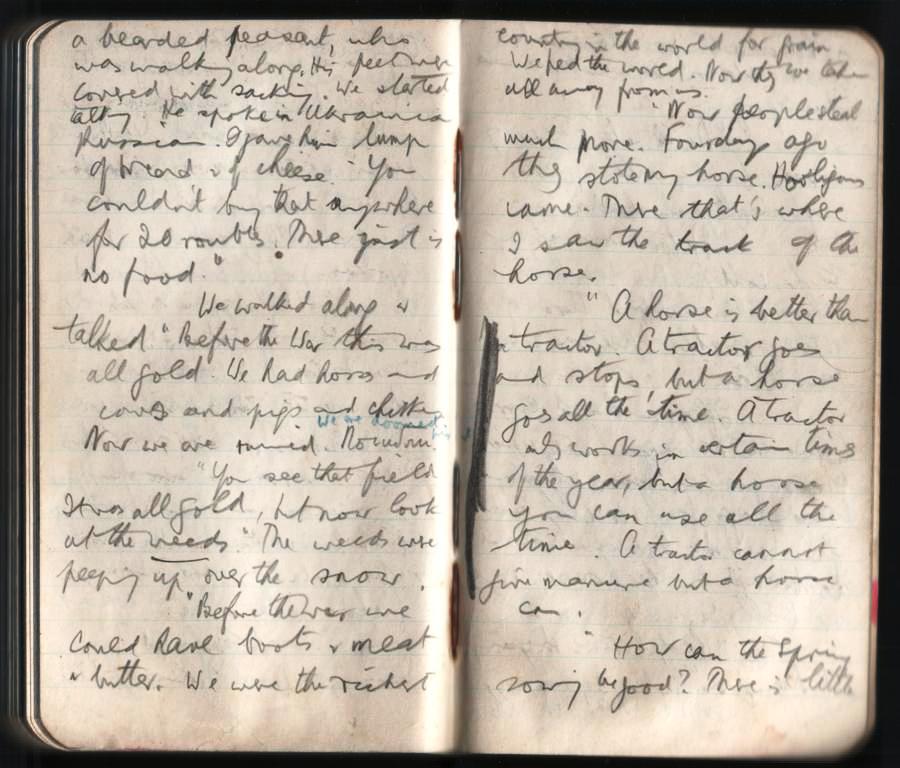 a bearded peasant, who
was walking along. His feet were
covered with sacking. We started
talking. He spoke in Ukrainian
Russian. I gave him lump
of bread & of cheese. "You
couldn't buy that anywhere
for 20 roubles. There just is
no food."
We walked along &
talked "Before the War this was
all gold. We had horses and
cows and pigs and chickens
we are doomed
Now we are ruined.
"You see that field
It was all gold, but now look
at the weeds". The weeds were
peeping up over the snow.
"Before the war we
could have boots & meat
& butter. We were the richest
country in the world for grain.
We fed the world. Now they have taken
all away from us.
"Now people steal
much more. Four days ago
they stole my horse. Hooligans
came. There that's where
I saw the track of the
horse.
"A horse is better than
a tractor. A tractor goes
and stops, but a horse
goes all the time. A tractor
only works in certain times
of the year, but a horse
you can use all the
time. A tractor cannot
give manure but a horse
can.
"How can the Spring
sowing be good? There is little